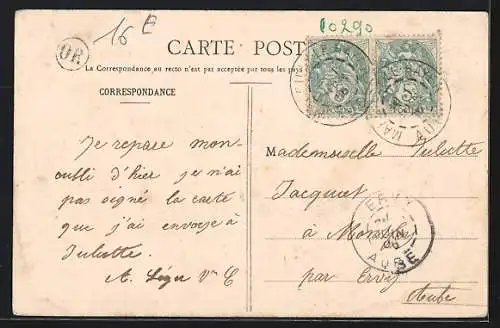 16 E
60290
OR
CARTE POST
La Correspondance au recto n'est pas acceptée par tous les pays
CORRESPONDANCE
Je repase mon-
oubli d'hier je n'ai
pas signé la carte
que j'ai envoyé à
Juliette.
Mademoiselle Juliette
Jacquet
à
par Ervy
Aube
ERVY
AUBE